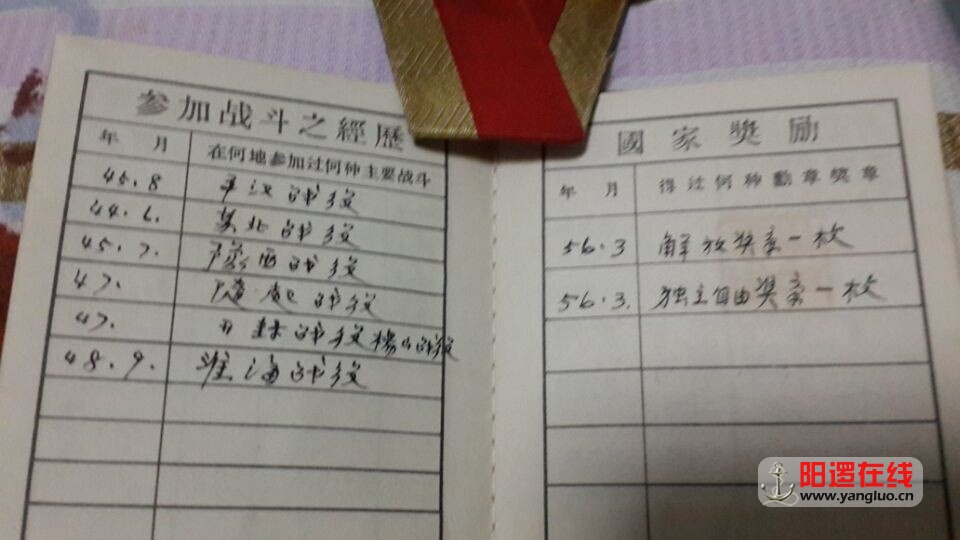 参加战斗之經歷
年 月 在何地参加过何种主要战斗
45.8 平汉战役
44.6. 战役
45.7. 陇西战役
47. 战役
47. 战役 战役
48.9. 淮海战役
國家獎励
年 月 得过何种勳章獎章
56.3 解放奖章一枚
56.3. 独立自由奖章一枚
阳逻在线
www.yangluo.cn